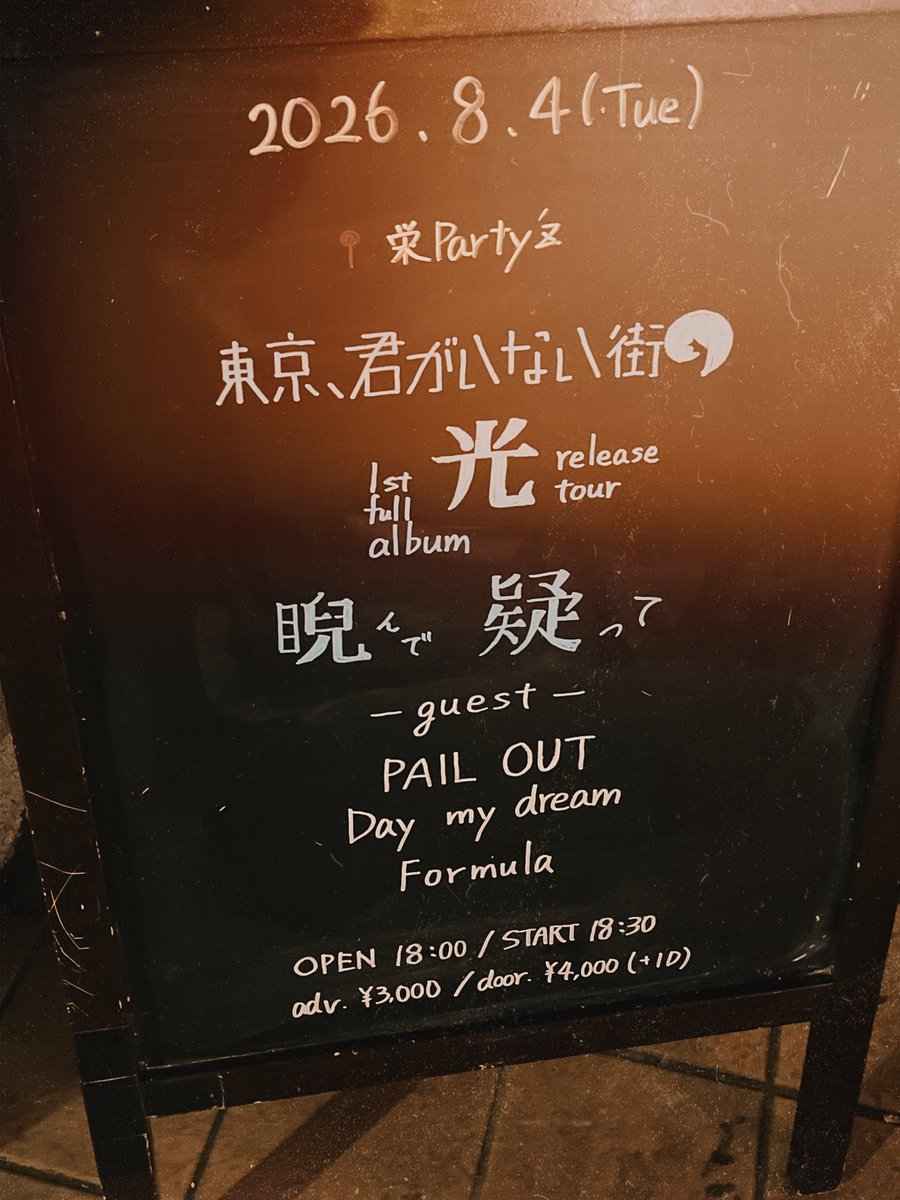 2026.8.4(Tue)
栄Party'z
東京、君がいない街
1st full album 光 release tour
睨んで 疑って
— guest —
PAIL OUT
Day my dream
Formula
OPEN 18:00 / START 18:30
adv. ¥3,000 / door. ¥4,000 (+1D)